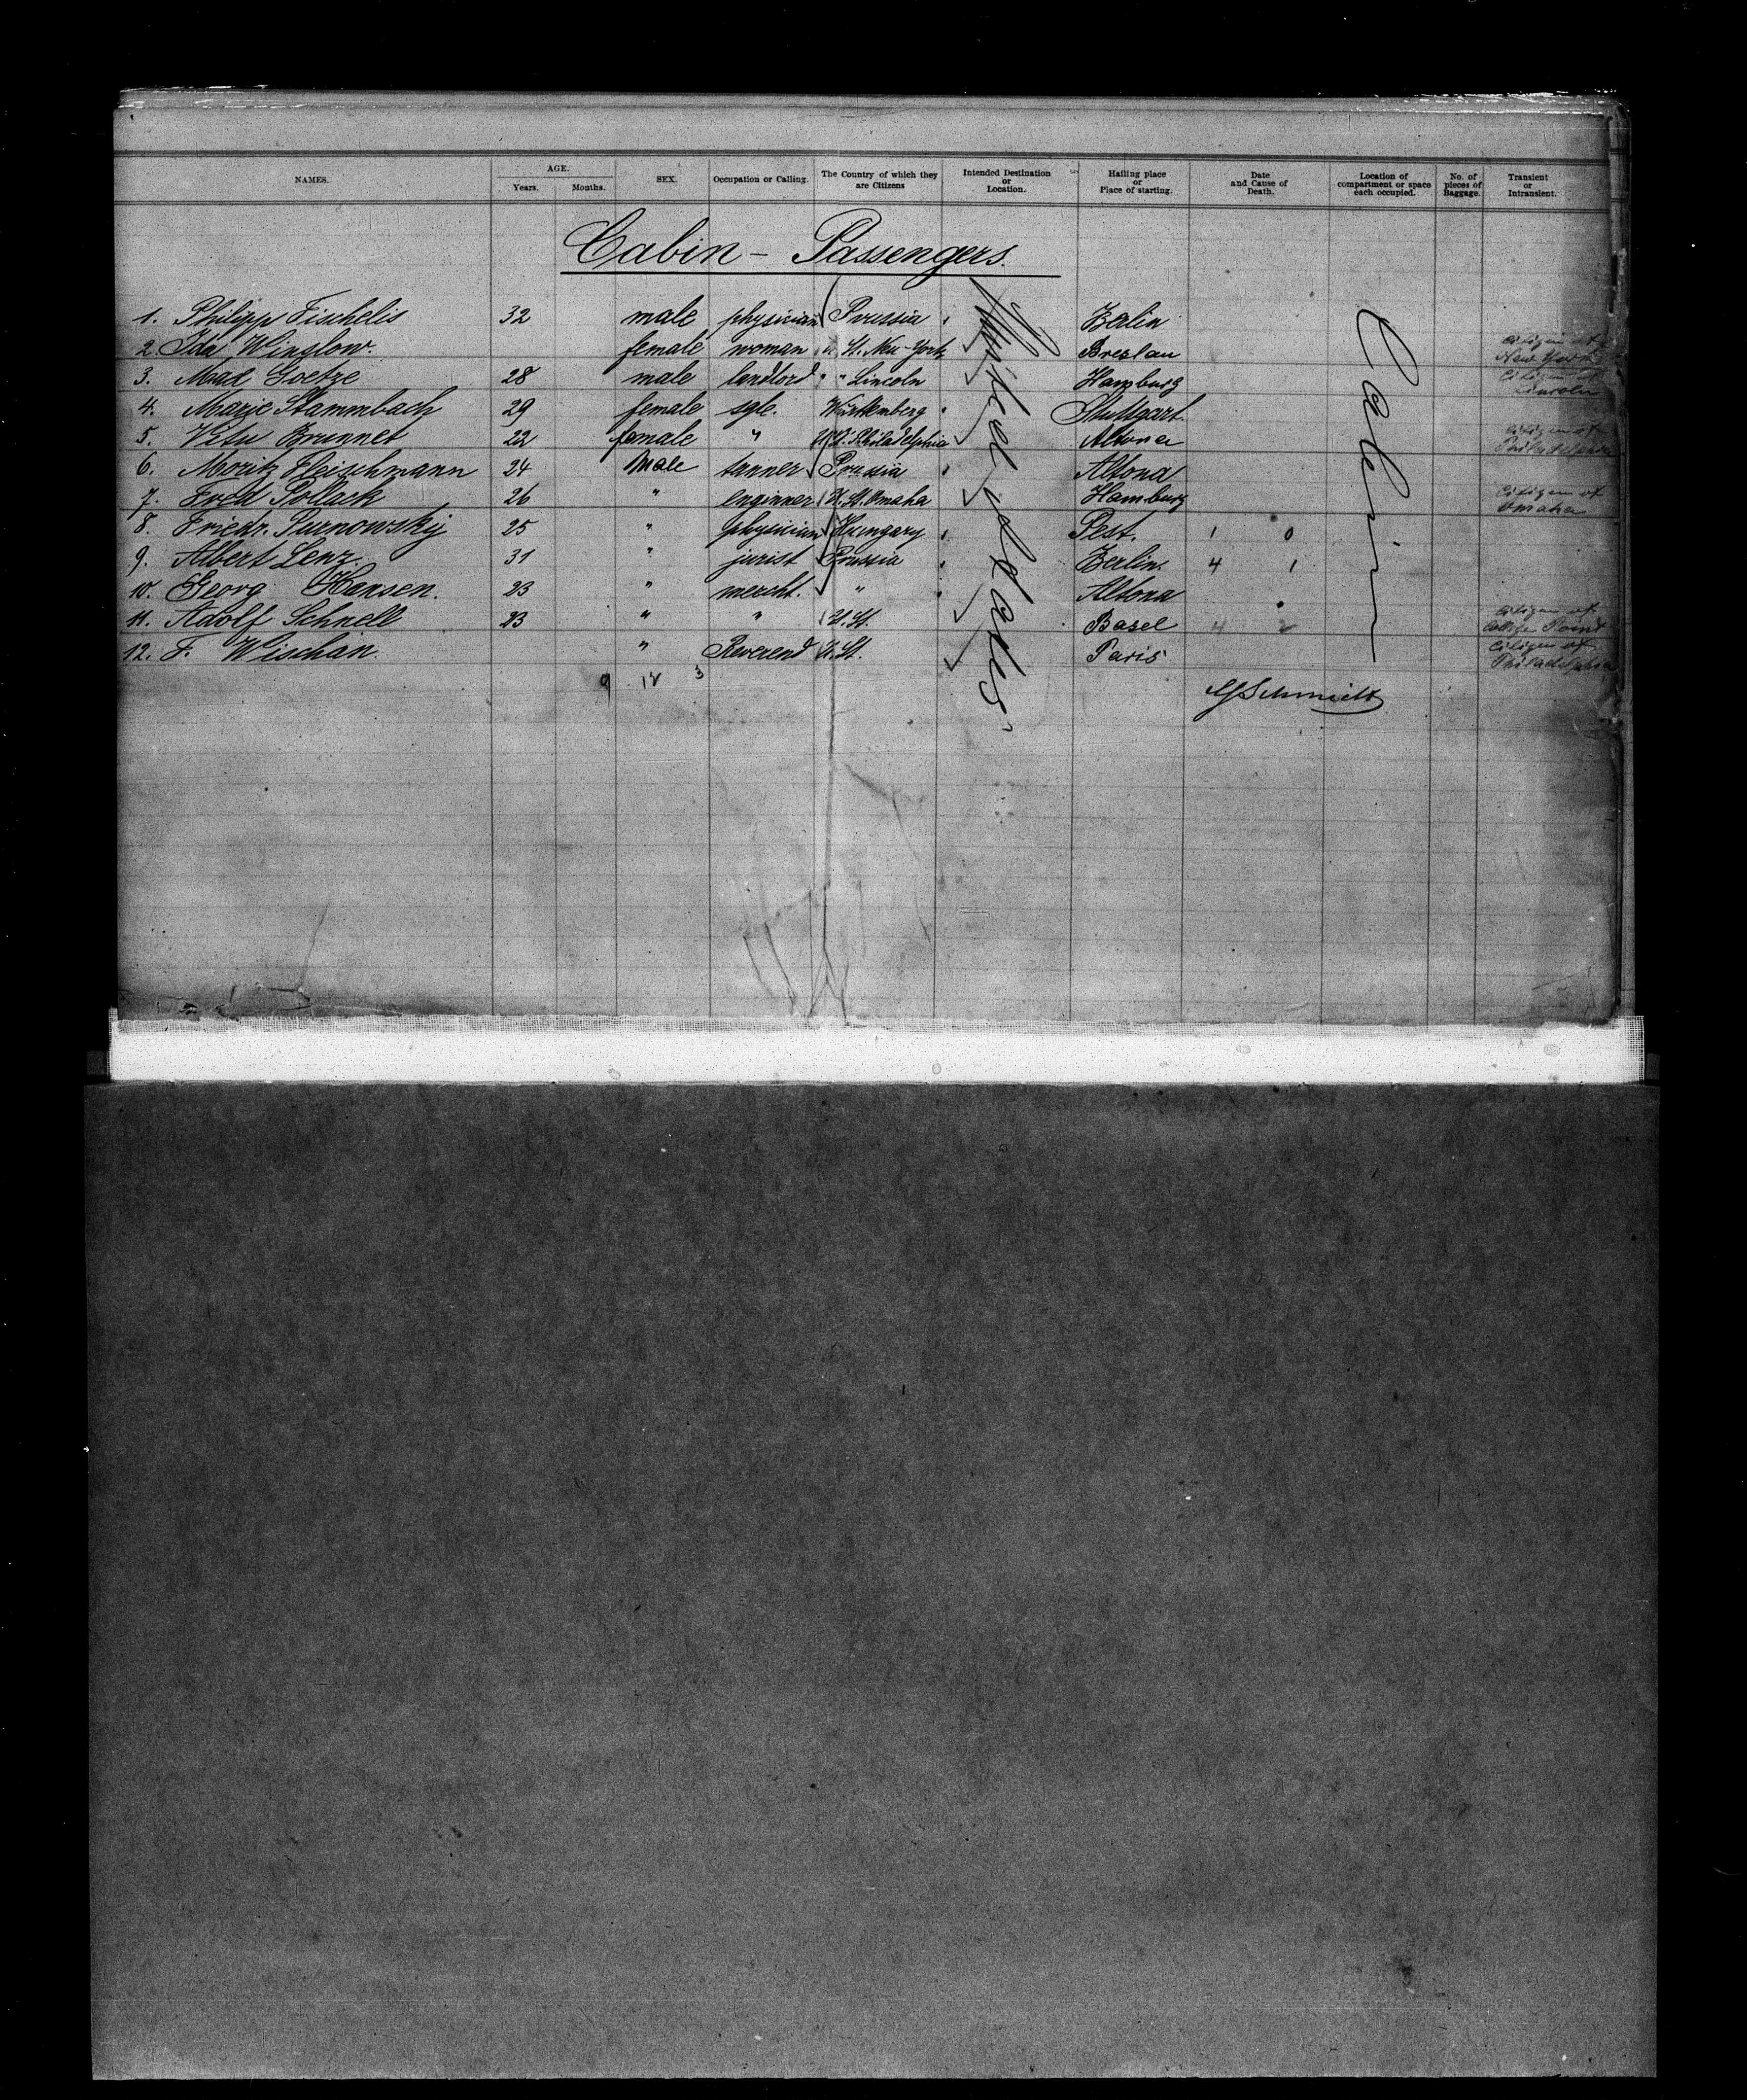 NAMES. AGE. Years. Months. SEX. Occupation or Calling. The Country of which they are Citizens Intended Destination or Location. Hailing place or Place of starting. Date and Cause of Death. Location of compartment or space each occupied. No. of pieces of Baggage. Transient or Intransient.
Cabin - Passengers.
1. Philipp Fischelis 32 male physician Prussia Berlin
2. Ida Winslow. female woman U. St. New-York Breslau citizen of New York
3. Goetze 28 male landlord " " Lincoln Hamburg citizen of Lincoln
4. Marie Stammbach 29 female sgle. Württemberg Stuttgart.
5. Brunnet 22 female " U. St. Philadelphia Altona citizen of Philadelphia
6. Moritz Fleischmann 24 male tanner Prussia Altona
7. Fred Pollack 26 " enginner U. St. Omaha Hamburg citizen of Omaha
8. Friedr. 25 " physician Hungary Pest. 1 0
9. Albert Lenz. 31 " jurist Prussia Berlin. 4 1
10. Georg Hansen. 23 " mercht. " Altona
11. Adolf Schnell 23 " " U. St. Basel 4 2 citizen of College Point
12. F. Wischan. " Reverend U. St. Paris citizen of Philadelphia
United States
Cabin
9 12 3
Schmidt